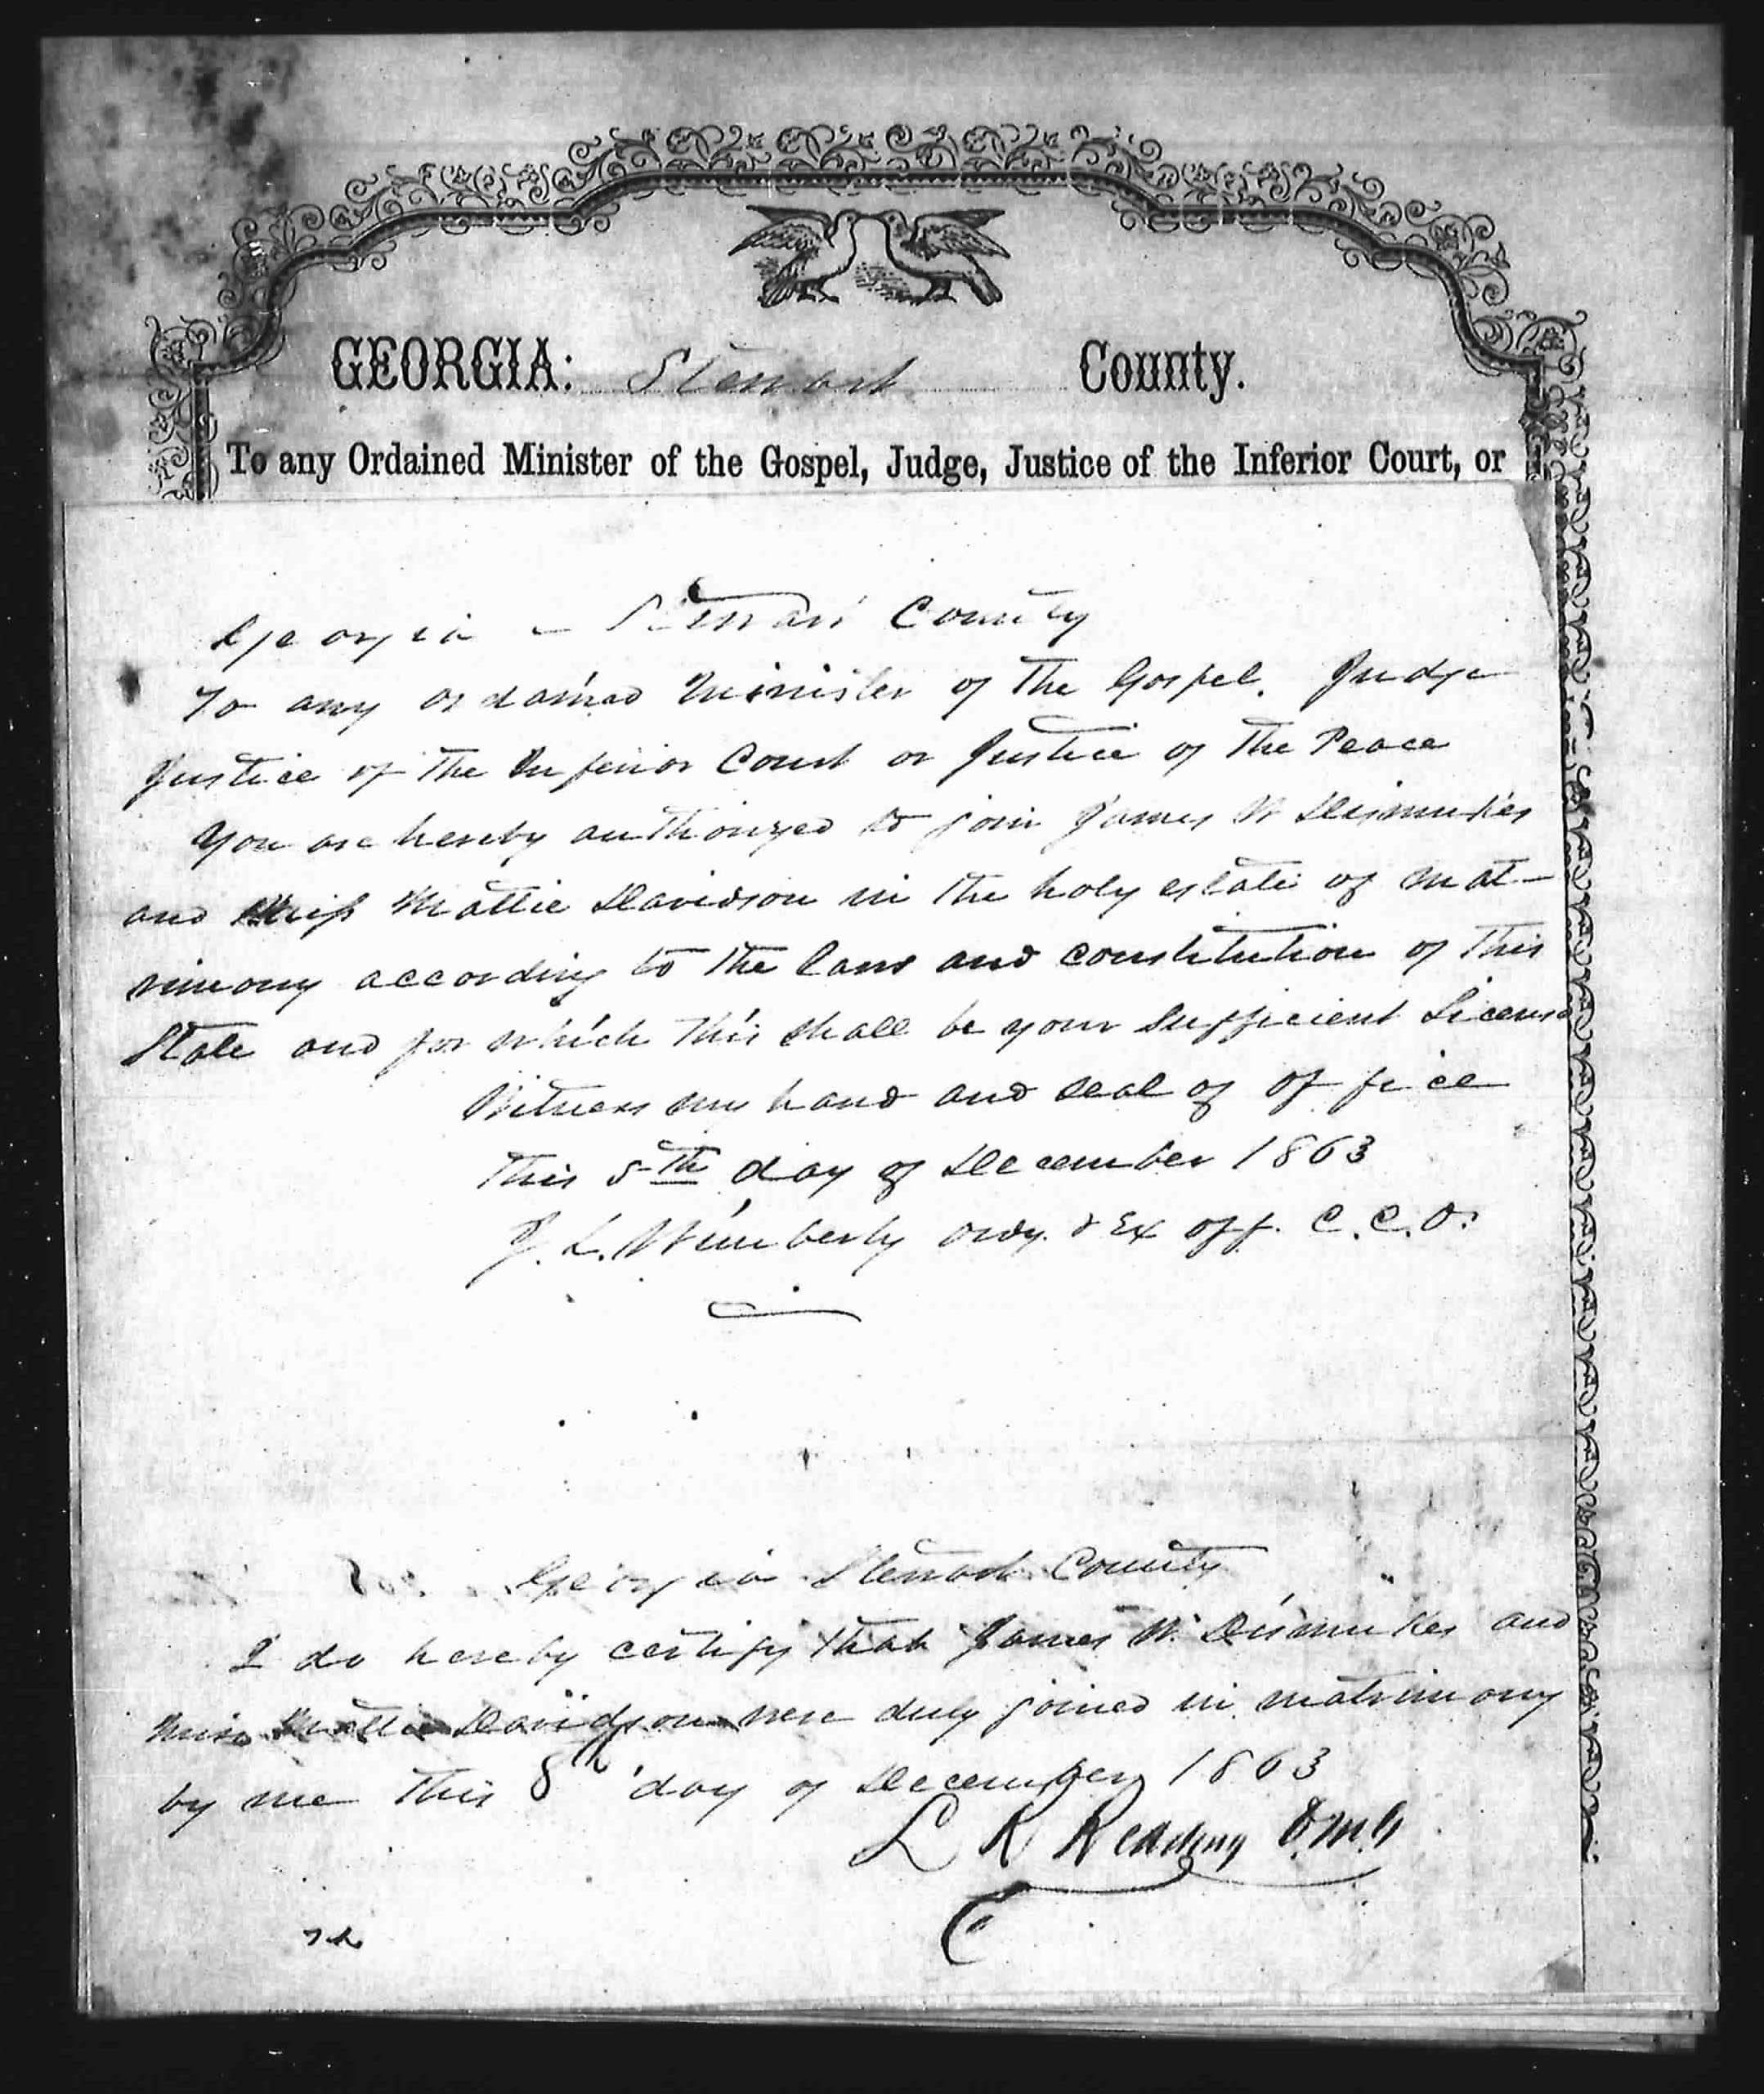 GEORGIA: Stewart County.
To any Ordained Minister of the Gospel, Judge, Justice of the Inferior Court, or
Georgia - Stewart County
To any ordained Minister of the Gospel. Judge
Justice of the Inferior Court or Justice of the Peace
You are hereby authorized to join James W Dismukes
and Miss Mattie Davidson in the holy estate of mat-
rimony according to the laws and constitution of this
State and for which this shall be your sufficient License
Witness my hand and seal of office
This 5th day of December 1863
J. L. Wimberly Ordy. & Ex off. C. C. O.
Georgia Stewart County
I do hereby certify that James W. Dismukes and
Miss Mattie Davidson were duly joined in matrimony
by me this 8th day of December 1863
L R Redding O.M.G